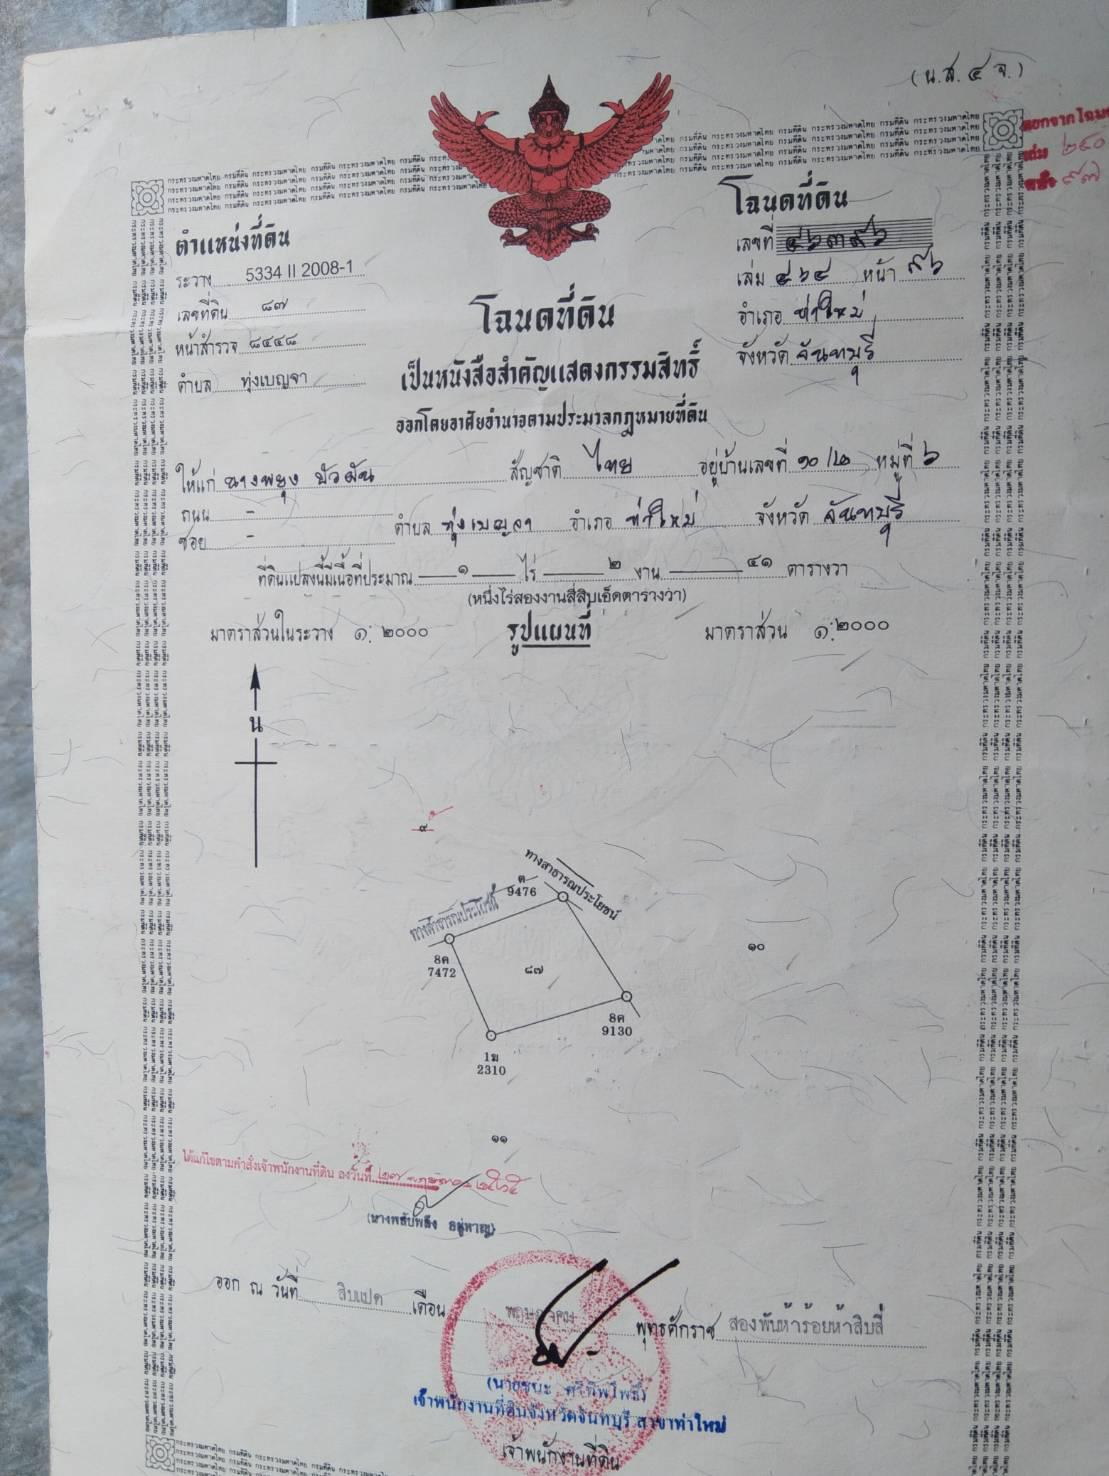 (น.ส. ๔ จ.)
๒๔๐
๙๗
ตำแหน่งที่ดิน
ระวาง 5334 II 2008-1
เลขที่ดิน ๘๗
หน้าสำรวจ ๘๔๔๘
ตำบล ทุ่งเบญจา
โฉนดที่ดิน
เลขที่ ๔๖๓๙๖
เล่ม ๔๖๔ หน้า ๙๖
อำเภอ ท่าใหม่
จังหวัด จันทบุรี
โฉนดที่ดิน
เป็นหนังสือสำคัญแสดงกรรมสิทธิ์
ออกโดยอาศัยอำนาจตามประมวลกฎหมายที่ดิน
ให้แก่ นางพยุง บัวผัน สัญชาติ ไทย อยู่บ้านเลขที่ ๑๐/๒ หมู่ที่ ๖
ถนน - ตำบล ทุ่งเบญจา อำเภอ ท่าใหม่ จังหวัด จันทบุรี
ซอย -
ที่ดินแปลงนี้มีเนื้อที่ประมาณ ๑ ไร่ ๒ งาน ๔๑ ตารางวา
(หนึ่งไร่สองงานสี่สิบเอ็ดตารางวา)
มาตราส่วนในระวาง ๑:๒๐๐๐ รูปแผนที่ มาตราส่วน ๑:๒๐๐๐
น
๙
ทางสาธารณประโยชน์
ต
9476
ทางสาธารณประโยชน์
8ค
7472
๘๗
๑๐
8ค
9130
1ม
2310
๑๑
ได้แก้ไขตามคำสั่งเจ้าพนักงานที่ดิน ลงวันที่ ๒๗
ออก ณ วันที่ สิบแปด เดือน พฤษภาคม พุทธศักราช สองพันห้าร้อยห้าสิบสี่
เจ้าพนักงานที่ดินจังหวัดจันทบุรี สาขาท่าใหม่
เจ้าพนักงานที่ดิน